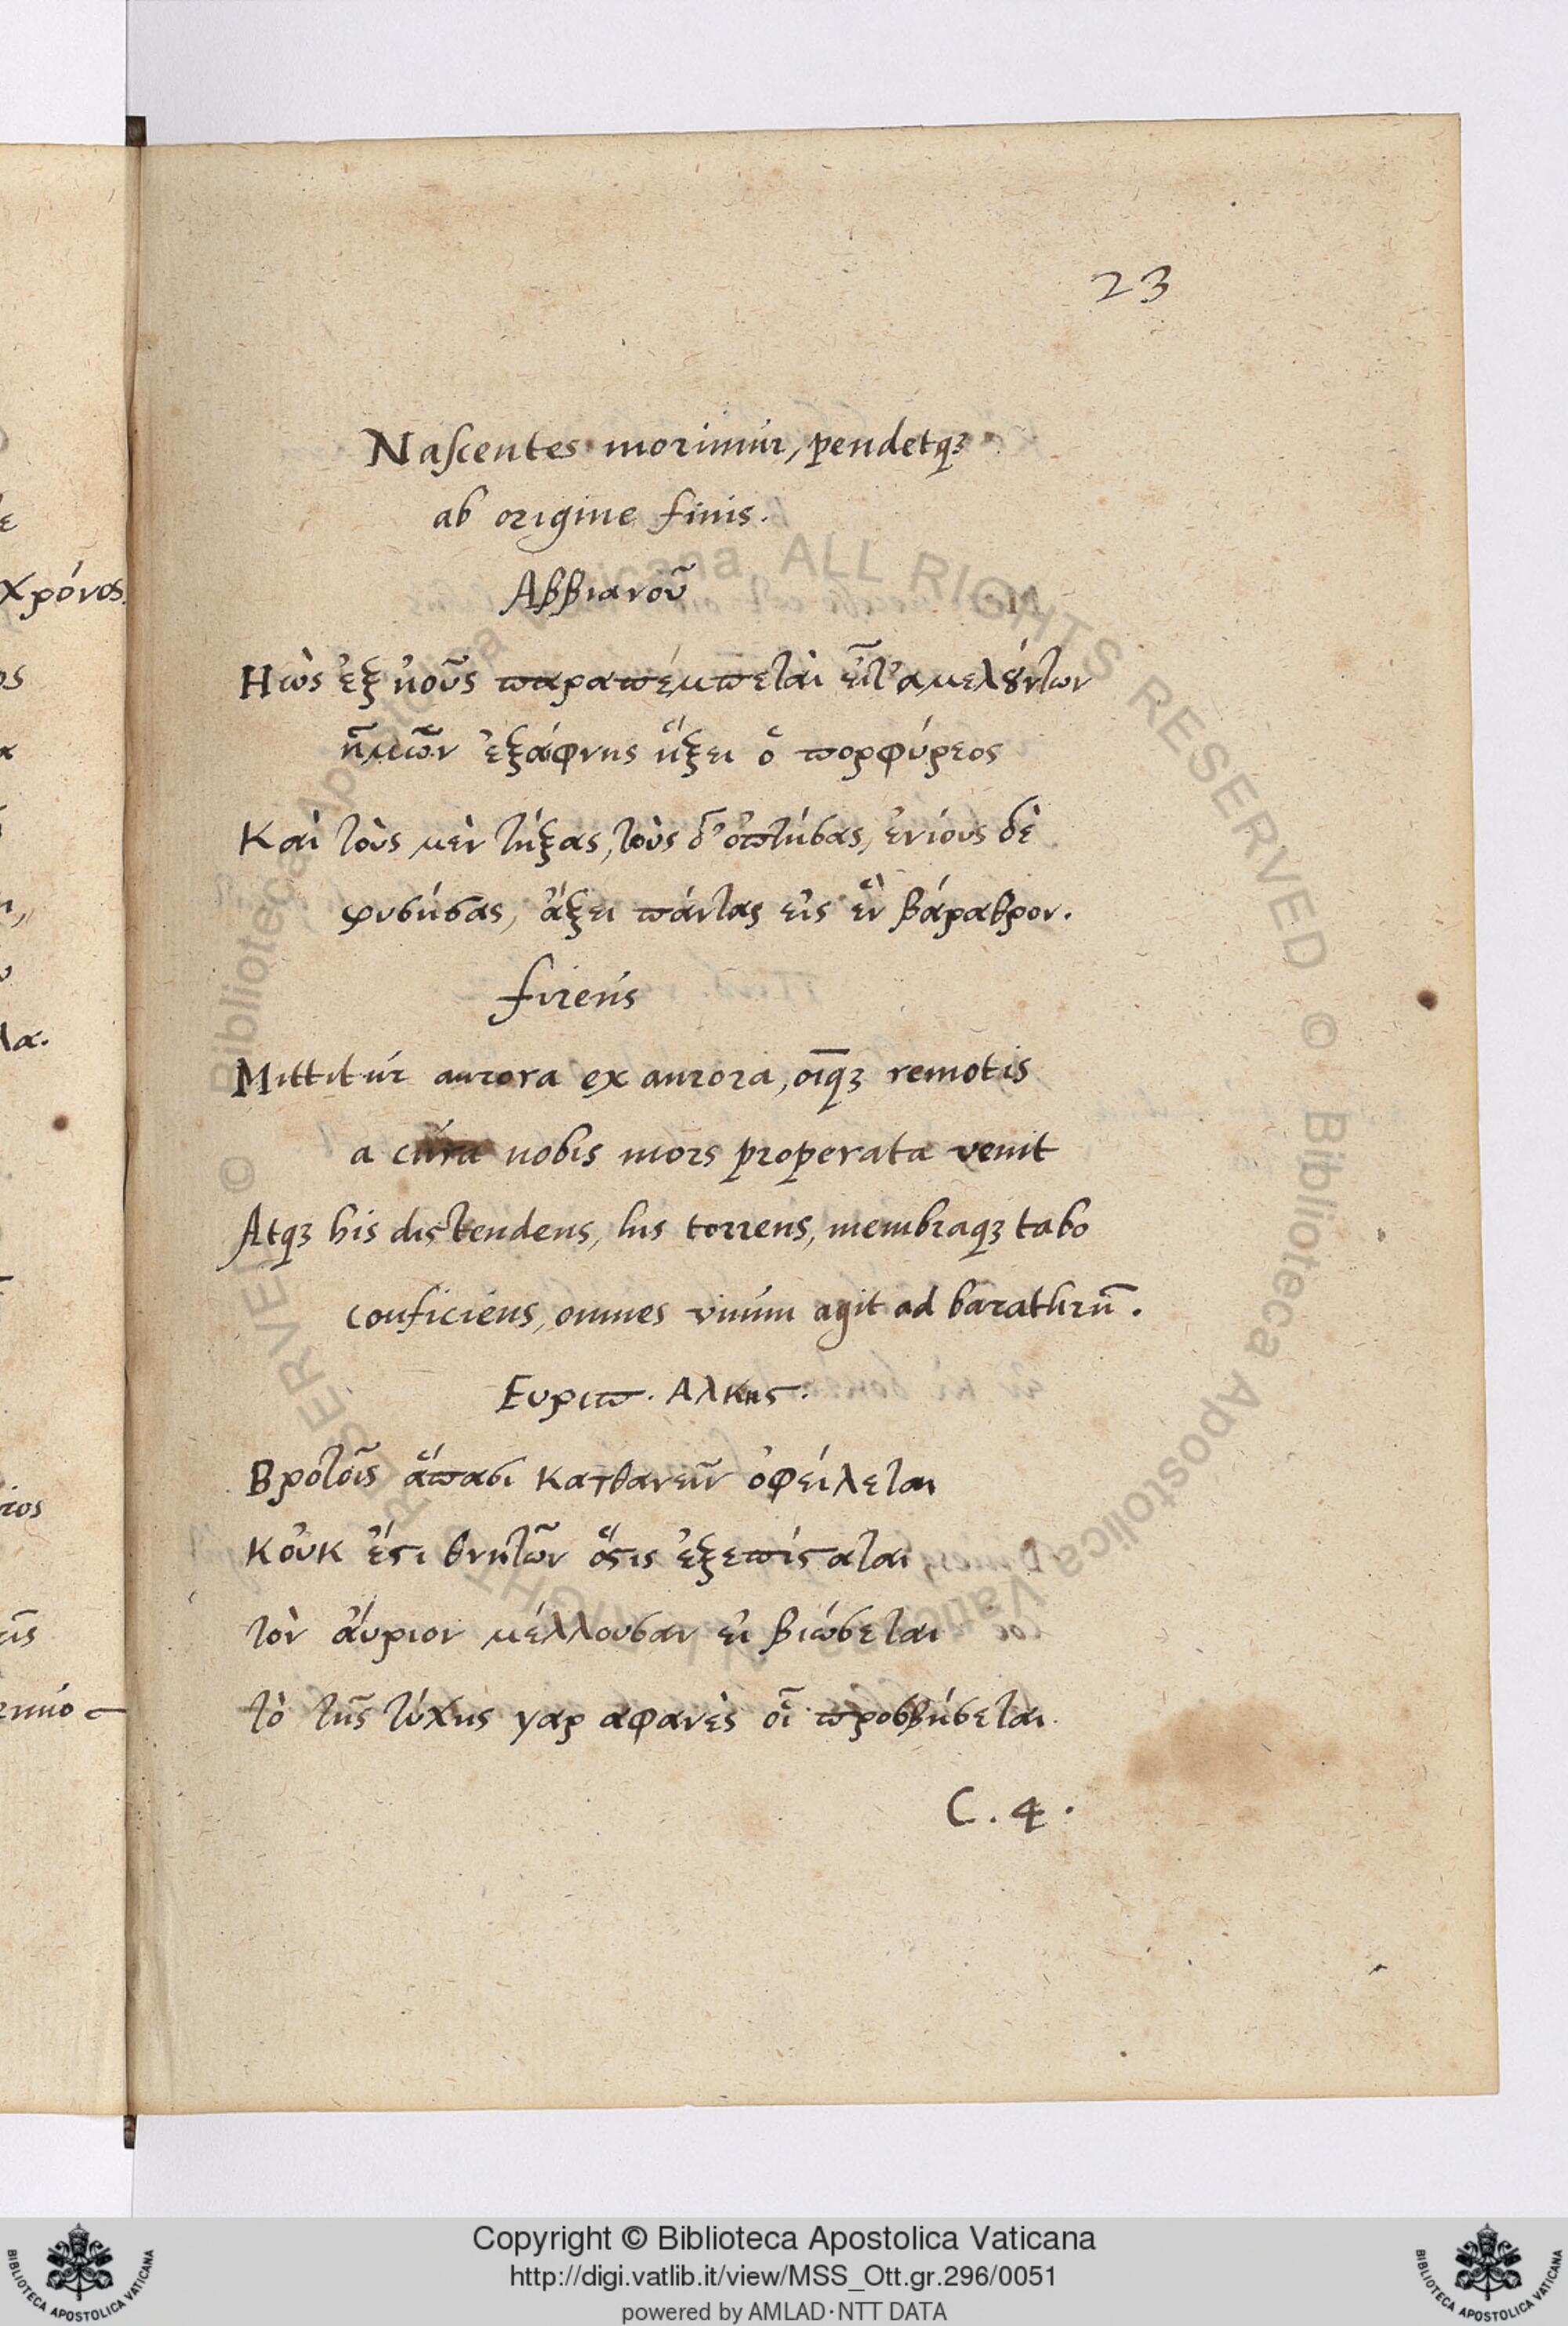 23
Nascentes morimur, pendetqʒ
ab origine finis.
Αββιανοῦ
Ηὼς ἐξ ἠοῦς παραπέμπεται εἶτ' αμελούντων
ἡμῶν ἐξάφνης ἥξει ὁ πορφύρεος
Καὶ τοὺς μὲν τήξας, τοὺς δ' ὀπτήσας, ἐνίους δὲ
φυσήσας, ἄξει πάντας εἰς ἓν βάραθρον.
Mittitur aurora ex aurora, oīqʒ remotis
a cura nobis mors properata venit
Atqʒ his distendens, his torrens, membraqʒ tabo
conficiens, omnes vnum agit ad barathrū.
Ευριπ. Αλκης.
Βροτοῖς ἅπασι κατθανεῖν ὀφείλεται
Κοὐκ ἔστι θνητῶν ὅστις ἐξεπίσταται
τὸν ἄυριον μέλλουσαν ει βιώσεται
τὸ τῆς τύχης γαρ αφανὲς οἷ προσβήσεται
C. 4.
χρόνος
Copyright © Biblioteca Apostolica Vaticana
http://digi.vatlib.it/view/MSS_Ott.gr.296/0051
powered by AMLAD·NTT DATA
BIBLIOTECA APOSTOLICA VATICANA
BIBLIOTECA APOSTOLICA VATICANA